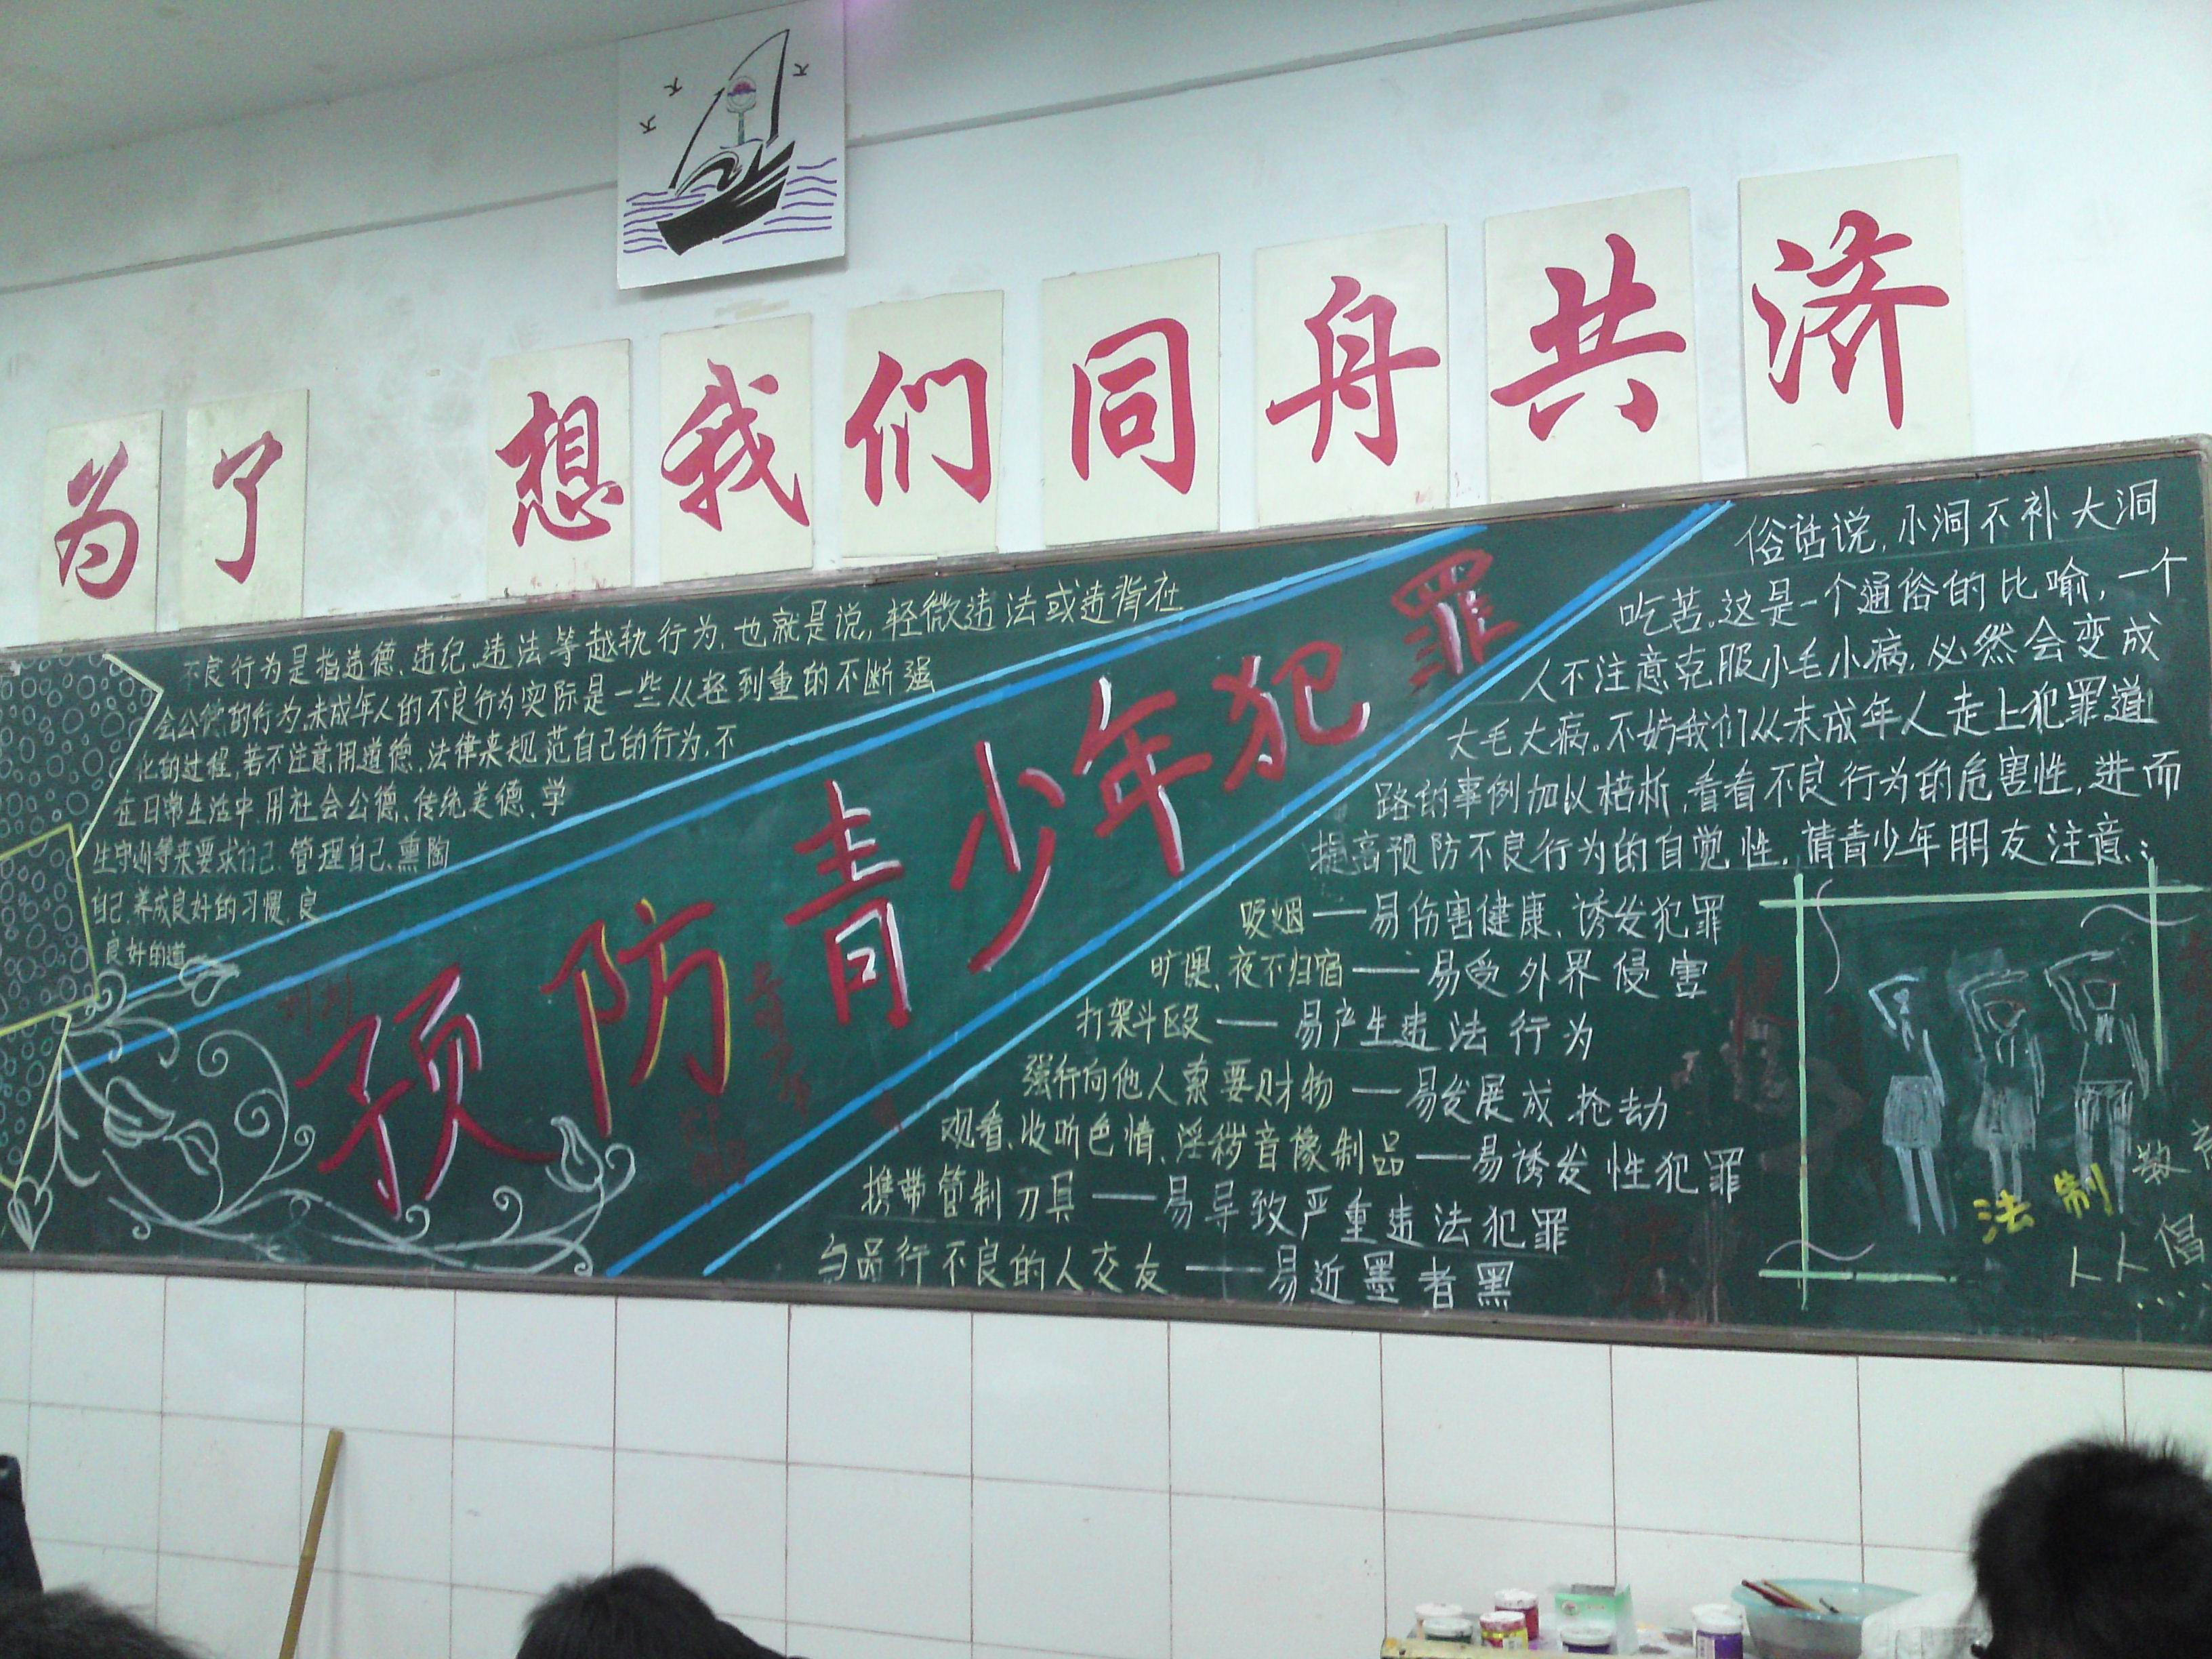 为了 想我们同舟共济
不良行为是指违德、违纪、违法等越轨行为,也就是说,轻微违法或违背社
会公德的行为,未成年人的不良行为实际是一些从轻到重的不断强
化的过程,若不注意用道德、法律来规范自己的行为,不
在日常生活中,用社会公德、传统美德、学
生守则等来要求自己、管理自己、熏陶
自己,养成良好的习惯、良
良好的道
预防青少年犯罪
俗话说,小洞不补大洞
吃苦。这是一个通俗的比喻,一个
人不注意克服小毛小病,必然会变成
大毛大病。不妨我们从未成年人走上犯罪道
路的事例加以梏析,看看不良行为的危害性,进而
提高预防不良行为的自觉性,请青少年朋友注意:
吸烟——易伤害健康、诱发犯罪
旷课、夜不归宿——易受外界侵害
打架斗殴——易产生违法行为
强行向他人索要财物——易发展成抢劫
观看、收听色情、淫秽音像制品——易诱发性犯罪
携带管制刀具——易导致严重违法犯罪
与品行不良的人交友——易近墨者黑
法制
人人倡